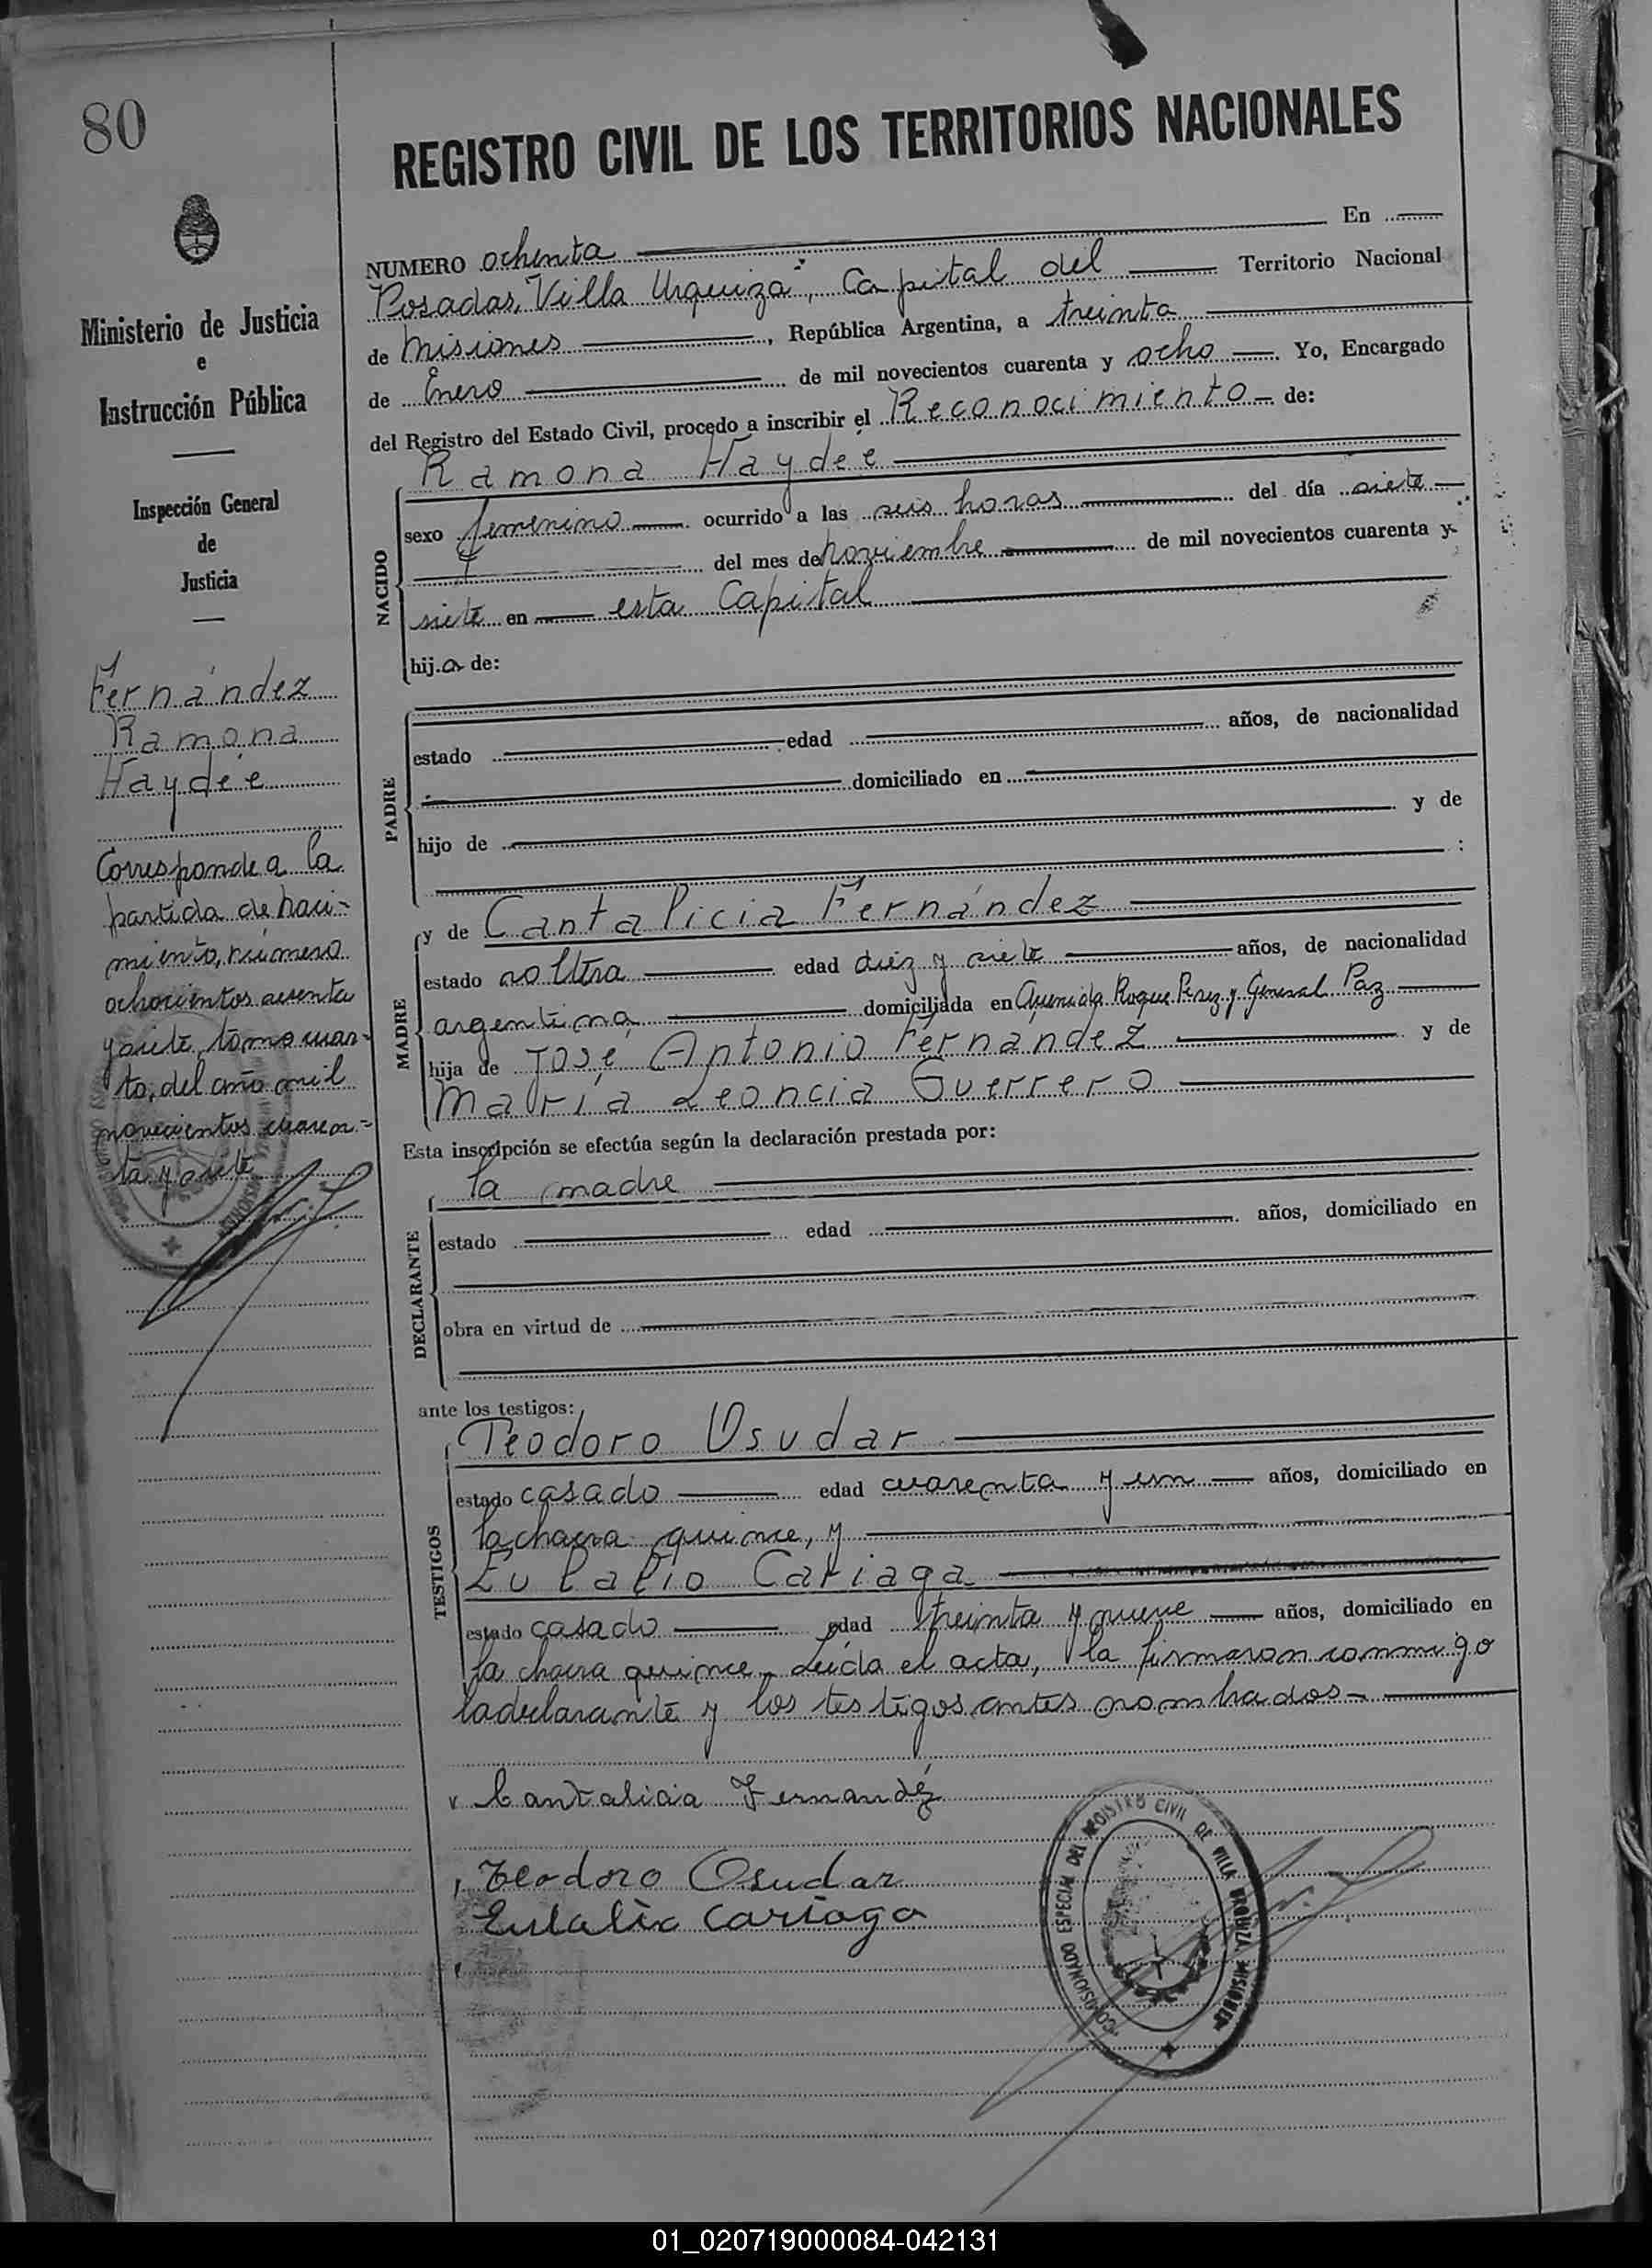 80
REGISTRO CIVIL DE LOS TERRITORIOS NACIONALES
Ministerio de Justicia
e
Instrucción Pública
Inspección General
de
Justicia
Fernández
Ramona
Haydée
Corresponde a la
partida de naci-
miento, número
ochocientos sesenta
y siete, tomo cuar-
to, del año mil
novecientos cuaren-
ta y siete
NUMERO ochenta En
Posadas, "Villa Urquiza", Capital del Territorio Nacional
de Misiones, República Argentina, a treinta
de Enero de mil novecientos cuarenta y ocho. Yo, Encargado
del Registro del Estado Civil, procedo a inscribir el Reconocimiento de:
Ramona Haydée
NACIDO
sexo femenino ocurrido a las seis horas del día siete
del mes de noviembre de mil novecientos cuarenta y
siete en esta Capital
hija de:
PADRE
estado edad años, de nacionalidad
domiciliado en
hijo de y de
:
MADRE
y de Cantalicia Fernández
estado soltera edad diez y siete años, de nacionalidad
argentina domiciliada en Avenida Roque Perez y General Paz
hija de José Antonio Fernández y de
María Leoncia Guerrero
Esta inscripción se efectúa según la declaración prestada por:
DECLARANTE
la madre
estado edad años, domiciliado en
obra en virtud de
ante los testigos:
TESTIGOS
Teodoro Osudar
estado casado edad cuarenta y un años, domiciliado en
la chacra quince, y
Eulalio Cariaga
estado casado edad treinta y nueve años, domiciliado en
la chacra quince. Leída el acta, la firmaron conmigo
la declarante y los testigos antes nombrados.
Cantalicia Fernandéz
Teodoro Osudar
Eulalio Cariaga
COMISIONADO ESPECIAL DEL REGISTRO CIVIL DE VILLA URQUIZA MISIONES
01_020719000084-042131